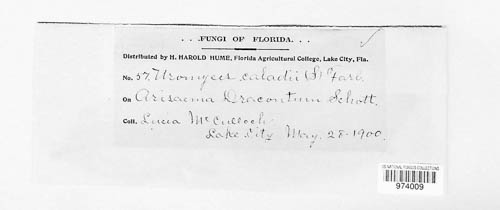 . . .FUNGI OF FLORIDA. . .
Distributed by H. HAROLD HUME, Florida Agricultural College, Lake City, Fla.
No. 57. Uromyces caladii (S) Farl.
On Arisaema Dracontium Schott.
Coll. Lucia McCulloch
Lake City May. 28-1900.
US NATIONAL FUNGUS COLLECTIONS
974009